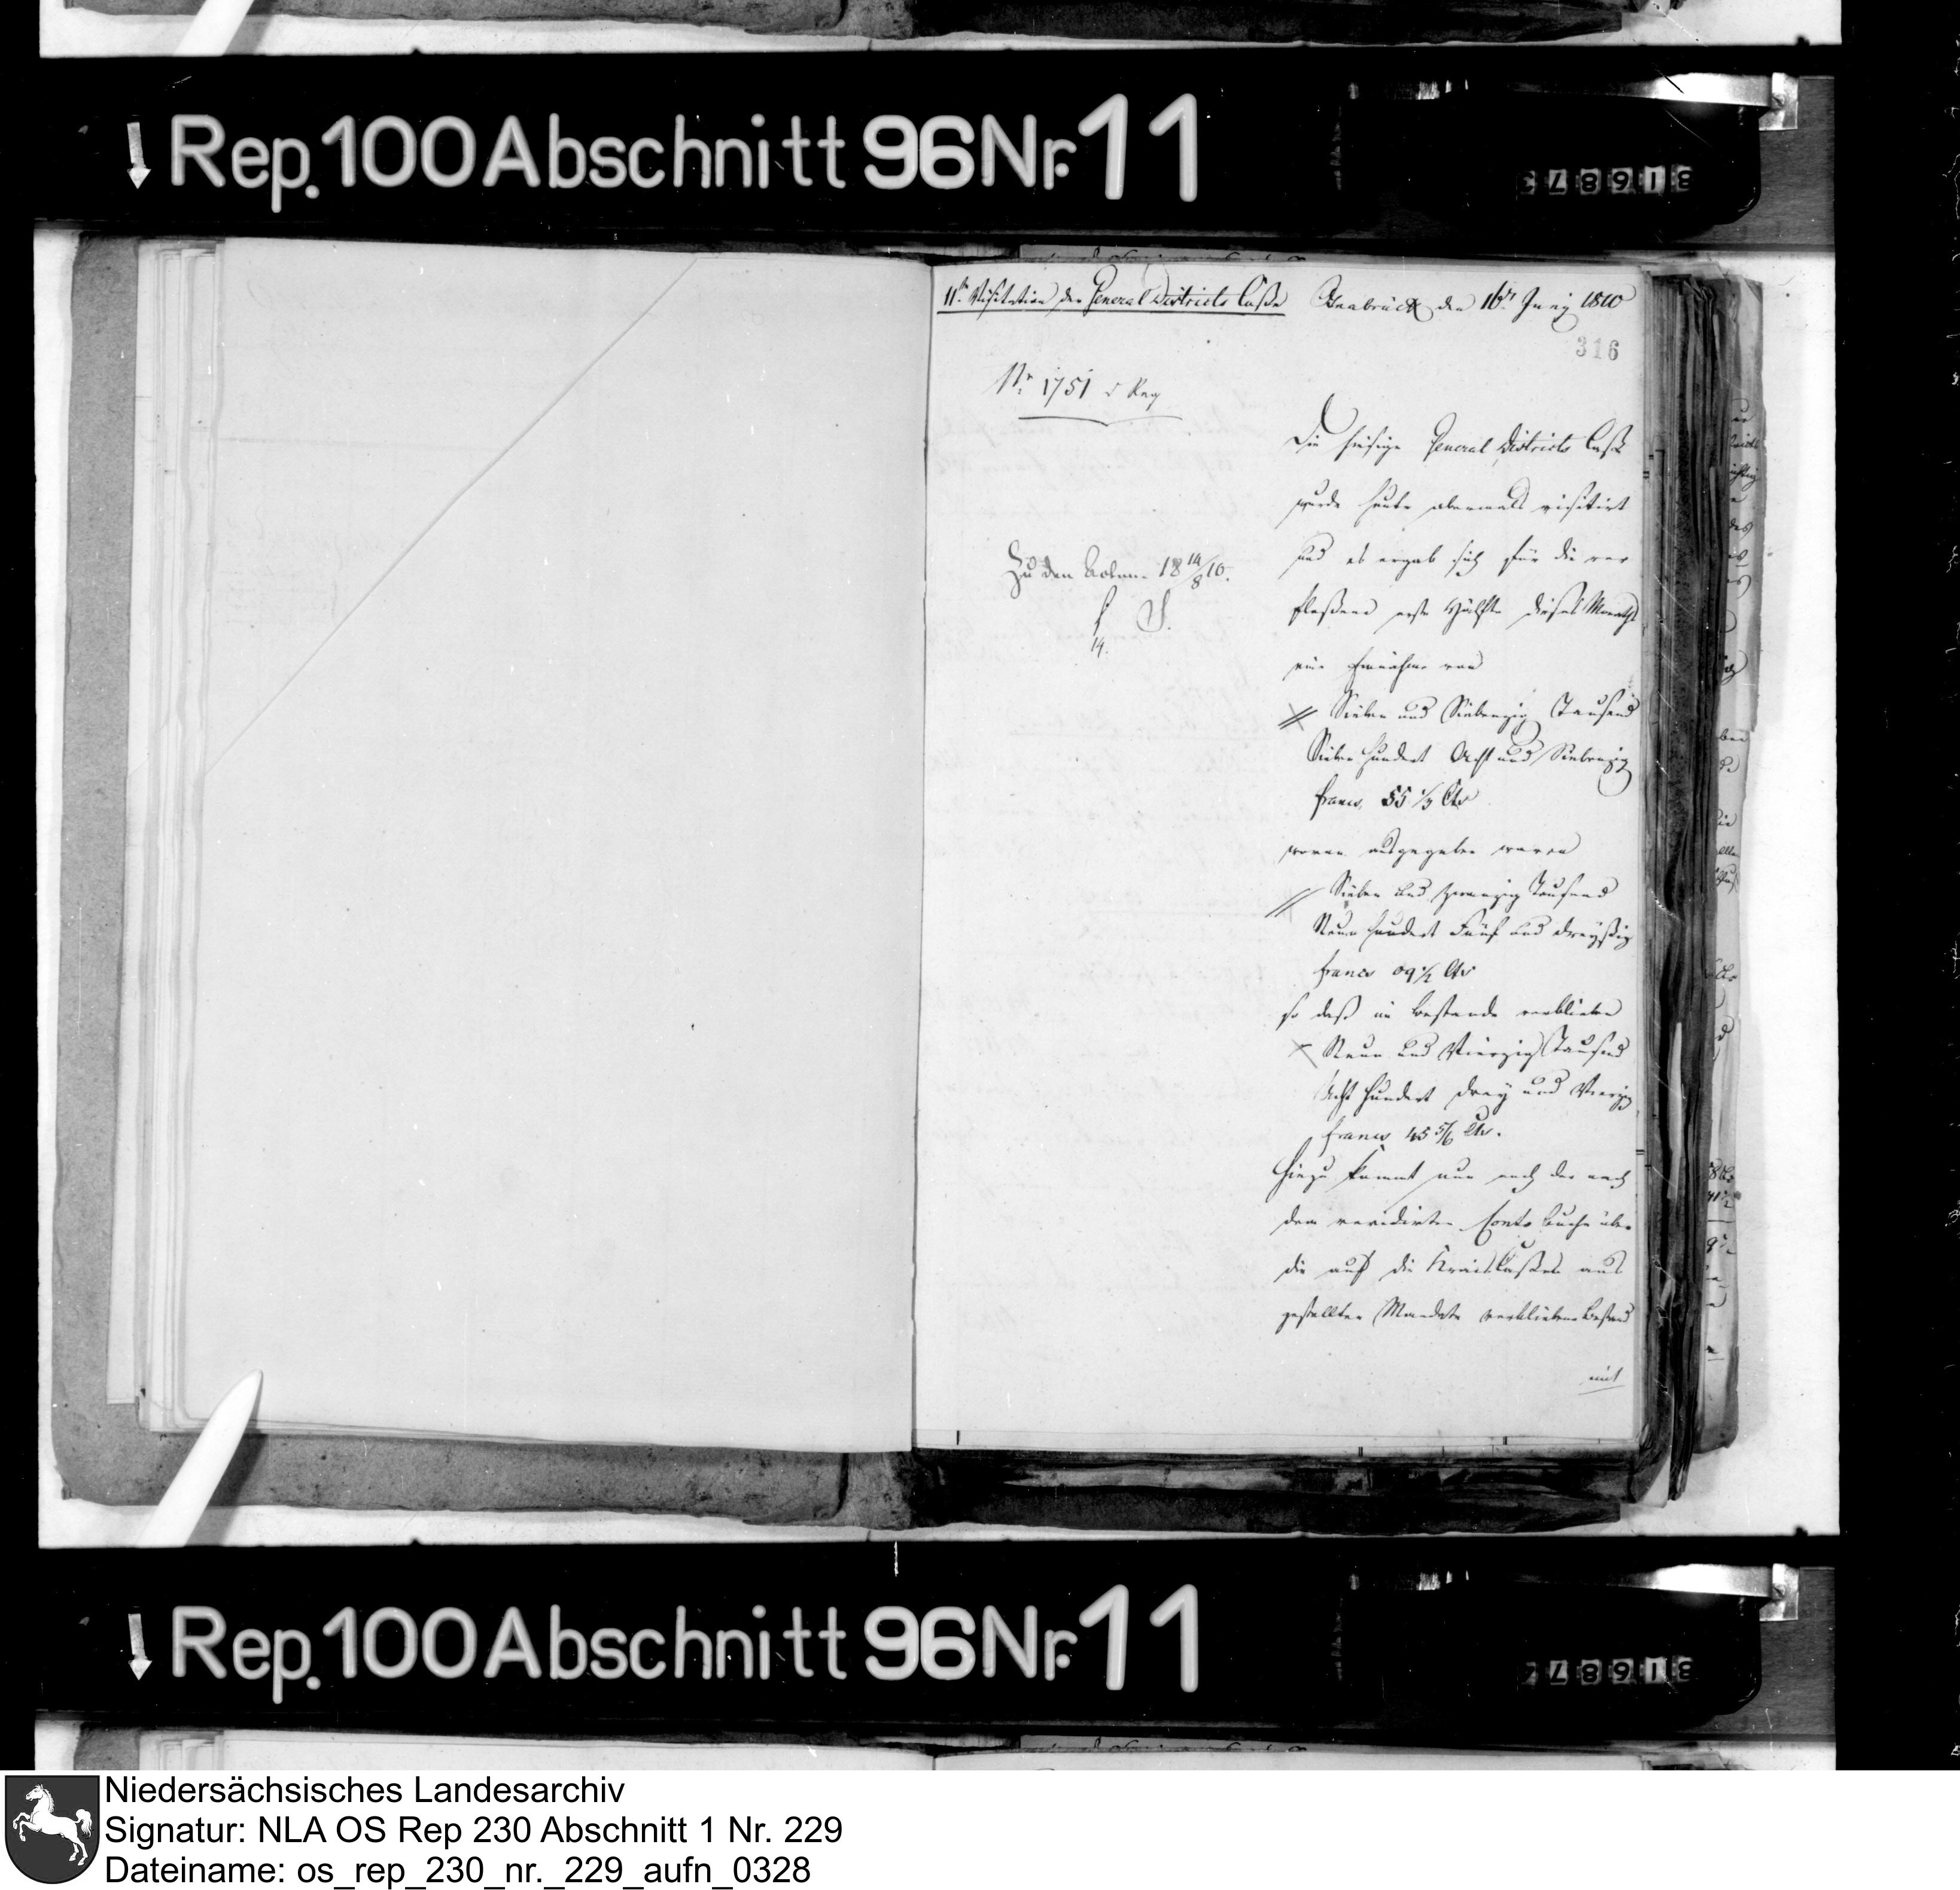 Rep. 100 Abschnitt 96 Nr. 11
11te Visitation der General Districts Casse
Osnabrück den 16ten Juny 1810
316
Nr. 1751 d Reg
Zu den Acten. 18 14/8 10.
14.
Die hiesige General Districts Casse
wurde heute abermals visitirt
und es ergab sich für die ver
flossene erste Hälfte dieses Monaths
eine Einnahme von
Sieben und Siebenzig Tausend
Sieben hundert Acht und Siebenzig
francs, 55 1/3 Cts
wovon ausgegeben waren
Sieben und zwanzig Tausend
Neun hundert Fünf und dreyßig
francs 09 1/2 Cts
so daß im Bestande verblieben
Neun und Vierzig Tausend
Acht hundert drey und Vierzig
francs 45 5/6 Cts.
hiezu kommt nun noch der nach
dem revidirten Conto Buche über
die auf die Kreis Cassen aus
gestellten Mandate verbliebene Bestand
mit
Rep. 100 Abschnitt 96 Nr. 11
Niedersächsisches Landesarchiv
Signatur: NLA OS Rep 230 Abschnitt 1 Nr. 229
Dateiname: os_rep_230_nr._229_aufn_0328